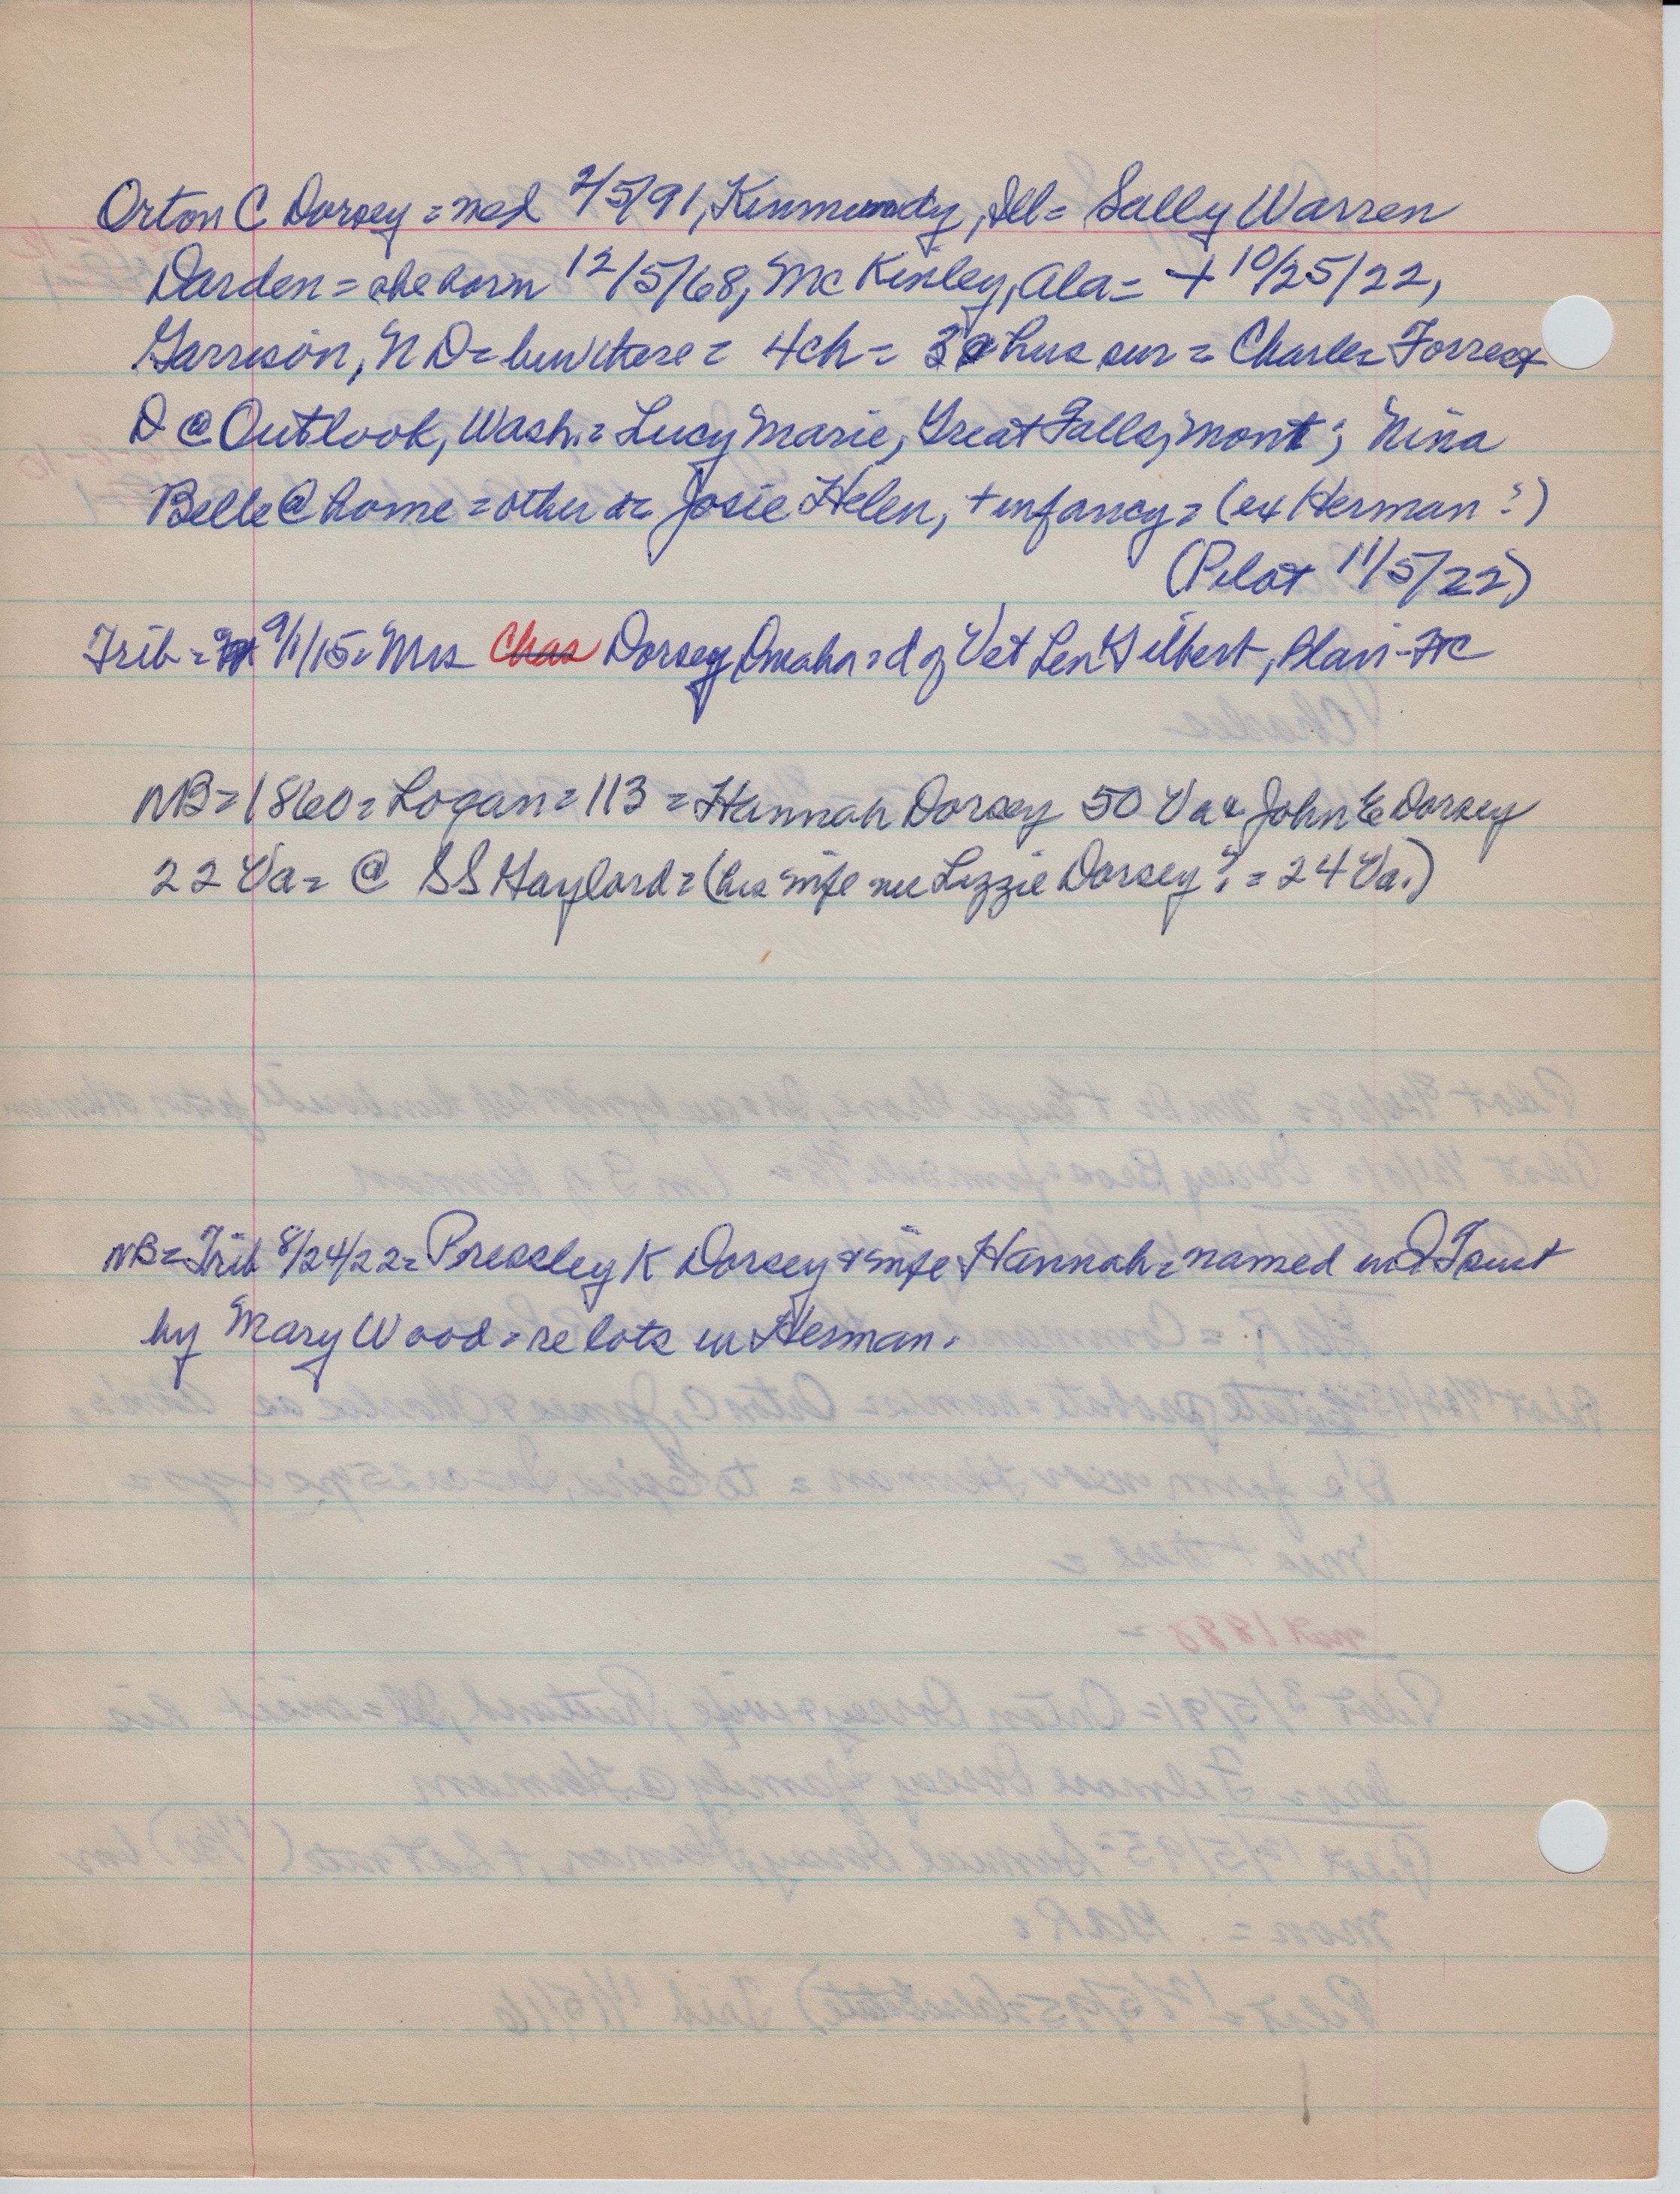 Orton C Dorsey = md 2/5/91, Kinmundy, Ill = Sally Warren
Darden = she born 12/5/68, McKinley, Ala = + 10/25/22,
Garrison, ND = bur there = 4ch = 3 & hus sur = Charles Forrest
D @ Outlook, Wash. = Lucy Marie, Great Falls, Mont; Nina
Belle @ home = other = Josie Helen, + infancy = (ex Herman?)
(Pilot 11/5/22)
Trib = 9/1/15 = Mrs Chas Dorsey, Omaha = d of Vet Len Gilbert, Blair
NB = 1860 = Logan = 113 = Hannah Dorsey 50 Va & John E Dorsey
22 Va = @ SS Gaylord = (his wife nee Lizzie Dorsey? = 24 Va.)
NB = Trib 8/24/22 = Pressley K Dorsey & wife Hannah = named in D Court
by Mary Wood = re lots in Herman.